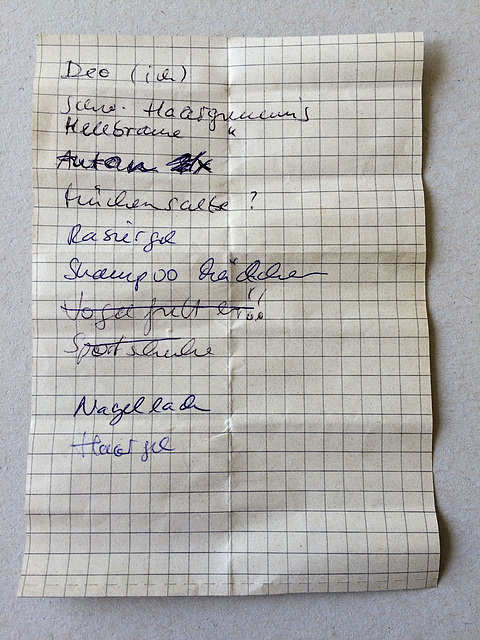 Deo (ich)
schw. Haargummis
Hellbraune "
Autan
Mückensalbe ?
Rasiergel
Shampoo Mädchen
Vogelfutter !!
Sportschuhe
Nagellack
Haargel